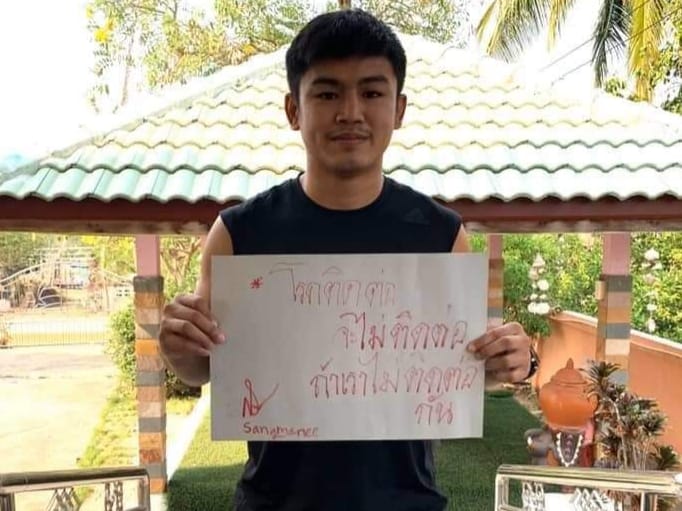 * โรคติดต่อ
จะไม่ติดต่อ
ถ้าเราไม่ติดต่อ
กัน
Sangmanee